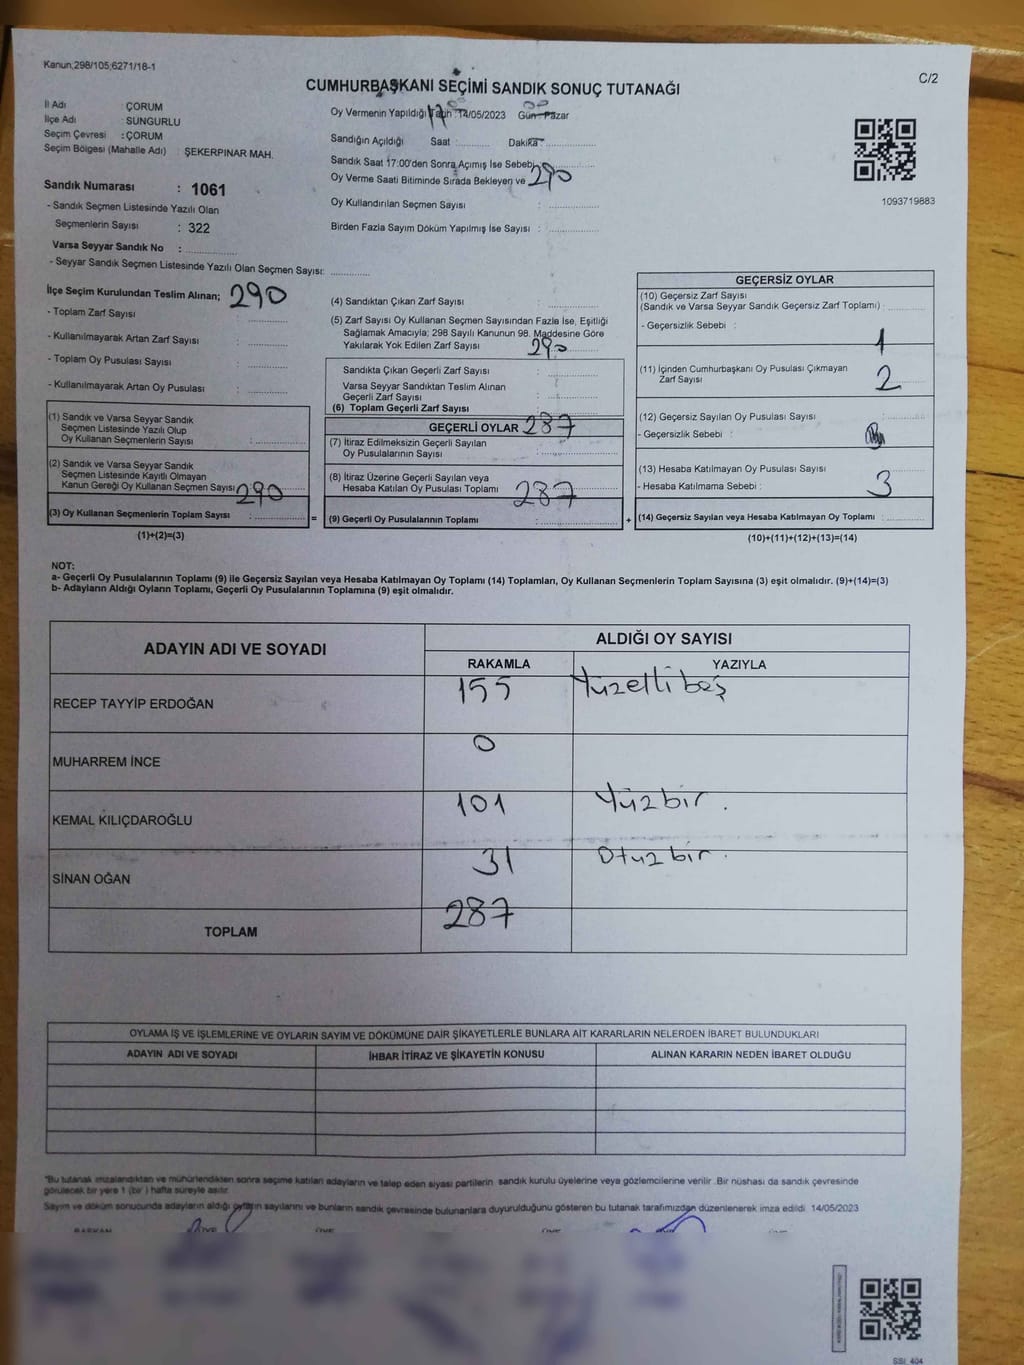 Kanun,298/105;6271/18-1
C/2
CUMHURBAŞKANI SEÇİMİ SANDIK SONUÇ TUTANAĞI
İl Adı : ÇORUM
İlçe Adı : SUNGURLU
Seçim Çevresi : ÇORUM
Seçim Bölgesi (Mahalle Adı) : ŞEKERPINAR MAH.
Sandık Numarası : 1061
- Sandık Seçmen Listesinde Yazılı Olan
Seçmenlerin Sayısı : 322
Varsa Seyyar Sandık No :
- Seyyar Sandık Seçmen Listesinde Yazılı Olan Seçmen Sayısı:
Oy Vermenin Yapıldığı Tarih :14/05/2023 Gün Pazar
17 00 00
Sandığın Açıldığı Saat : Dakika
Sandık Saat 17:00'den Sonra Açımış İse Sebebi
Oy Verme Saati Bitiminde Sırada Bekleyen ve 290
Oy Kullandırılan Seçmen Sayısı :
Birden Fazla Sayım Döküm Yapılmış İse Sayısı :
1093719883
İlçe Seçim Kurulundan Teslim Alınan; 290
- Toplam Zarf Sayısı :
- Kullanılmayarak Artan Zarf Sayısı :
- Toplam Oy Pusulası Sayısı :
- Kullanılmayarak Artan Oy Pusulası :
(1) Sandık ve Varsa Seyyar Sandık
Seçmen Listesinde Yazılı Olup
Oy Kullanan Seçmenlerin Sayısı :
(2) Sandık ve Varsa Seyyar Sandık
Seçmen Listesinde Kayıtlı Olmayan
Kanun Gereği Oy Kullanan Seçmen Sayısı 290
(3) Oy Kullanan Seçmenlerin Toplam Sayısı :
(1)+(2)=(3)
(4) Sandıktan Çıkan Zarf Sayısı :
(5) Zarf Sayısı Oy Kullanan Seçmen Sayısından Fazla İse, Eşitliği
Sağlamak Amacıyla; 298 Sayılı Kanunun 98. Maddesine Göre
Yakılarak Yok Edilen Zarf Sayısı 290
Sandıkta Çıkan Geçerli Zarf Sayısı :
Varsa Seyyar Sandıktan Teslim Alınan
Geçerli Zarf Sayısı :
(6) Toplam Geçerli Zarf Sayısı
GEÇERLİ OYLAR 287
(7) İtiraz Edilmeksizin Geçerli Sayılan
Oy Pusulalarının Sayısı :
(8) İtiraz Üzerine Geçerli Sayılan veya
Hesaba Katılan Oy Pusulası Toplamı 287
= (9) Geçerli Oy Pusulalarının Toplamı :
GEÇERSİZ OYLAR
(10) Geçersiz Zarf Sayısı
(Sandık ve Varsa Seyyar Sandık Geçersiz Zarf Toplamı) :
- Geçersizlik Sebebi : 1
(11) İçinden Cumhurbaşkanı Oy Pusulası Çıkmayan
Zarf Sayısı 2
(12) Geçersiz Sayılan Oy Pusulası Sayısı :
- Geçersizlik Sebebi :
(13) Hesaba Katılmayan Oy Pusulası Sayısı
- Hesaba Katılmama Sebebi : 3
+ (14) Geçersiz Sayılan veya Hesaba Katılmayan Oy Toplamı :
(10)+(11)+(12)+(13)=(14)
NOT:
a- Geçerli Oy Pusulalarının Toplamı (9) ile Geçersiz Sayılan veya Hesaba Katılmayan Oy Toplamı (14) Toplamları, Oy Kullanan Seçmenlerin Toplam Sayısına (3) eşit olmalıdır. (9)+(14)=(3)
b- Adayların Aldığı Oyların Toplamı, Geçerli Oy Pusulalarının Toplamına (9) eşit olmalıdır.
ADAYIN ADI VE SOYADI ALDIĞI OY SAYISI
RAKAMLA YAZIYLA
RECEP TAYYİP ERDOĞAN 155 Yüzellibeş
MUHARREM İNCE 0
KEMAL KILIÇDAROĞLU 101 Yüzbir.
SİNAN OĞAN 31 Otuzbir.
TOPLAM 287
OYLAMA İŞ VE İŞLEMLERİNE VE OYLARIN SAYIM VE DÖKÜMÜNE DAİR ŞİKAYETLERLE BUNLARA AİT KARARLARIN NELERDEN İBARET BULUNDUKLARI
ADAYIN ADI VE SOYADI İHBAR İTİRAZ VE ŞİKAYETİN KONUSU ALINAN KARARIN NEDEN İBARET OLDUĞU
*Bu tutanak imzalandıktan ve mühürlendikten sonra seçime katılan adayların ve talep eden siyasi partilerin sandık kurulu üyelerine veya gözlemcilerine verilir .Bir nüshası da sandık çevresinde
görülecek bir yere 1 (bir ) hafta süreyle asılır.
Sayım ve döküm sonucunda adayların aldığı oyların sayılarını ve bunların sandık çevresinde bulunanlara duyurulduğunu gösteren bu tutanak tarafımızdan düzenlenerek imza edildi. 14/05/2023
SSI_404